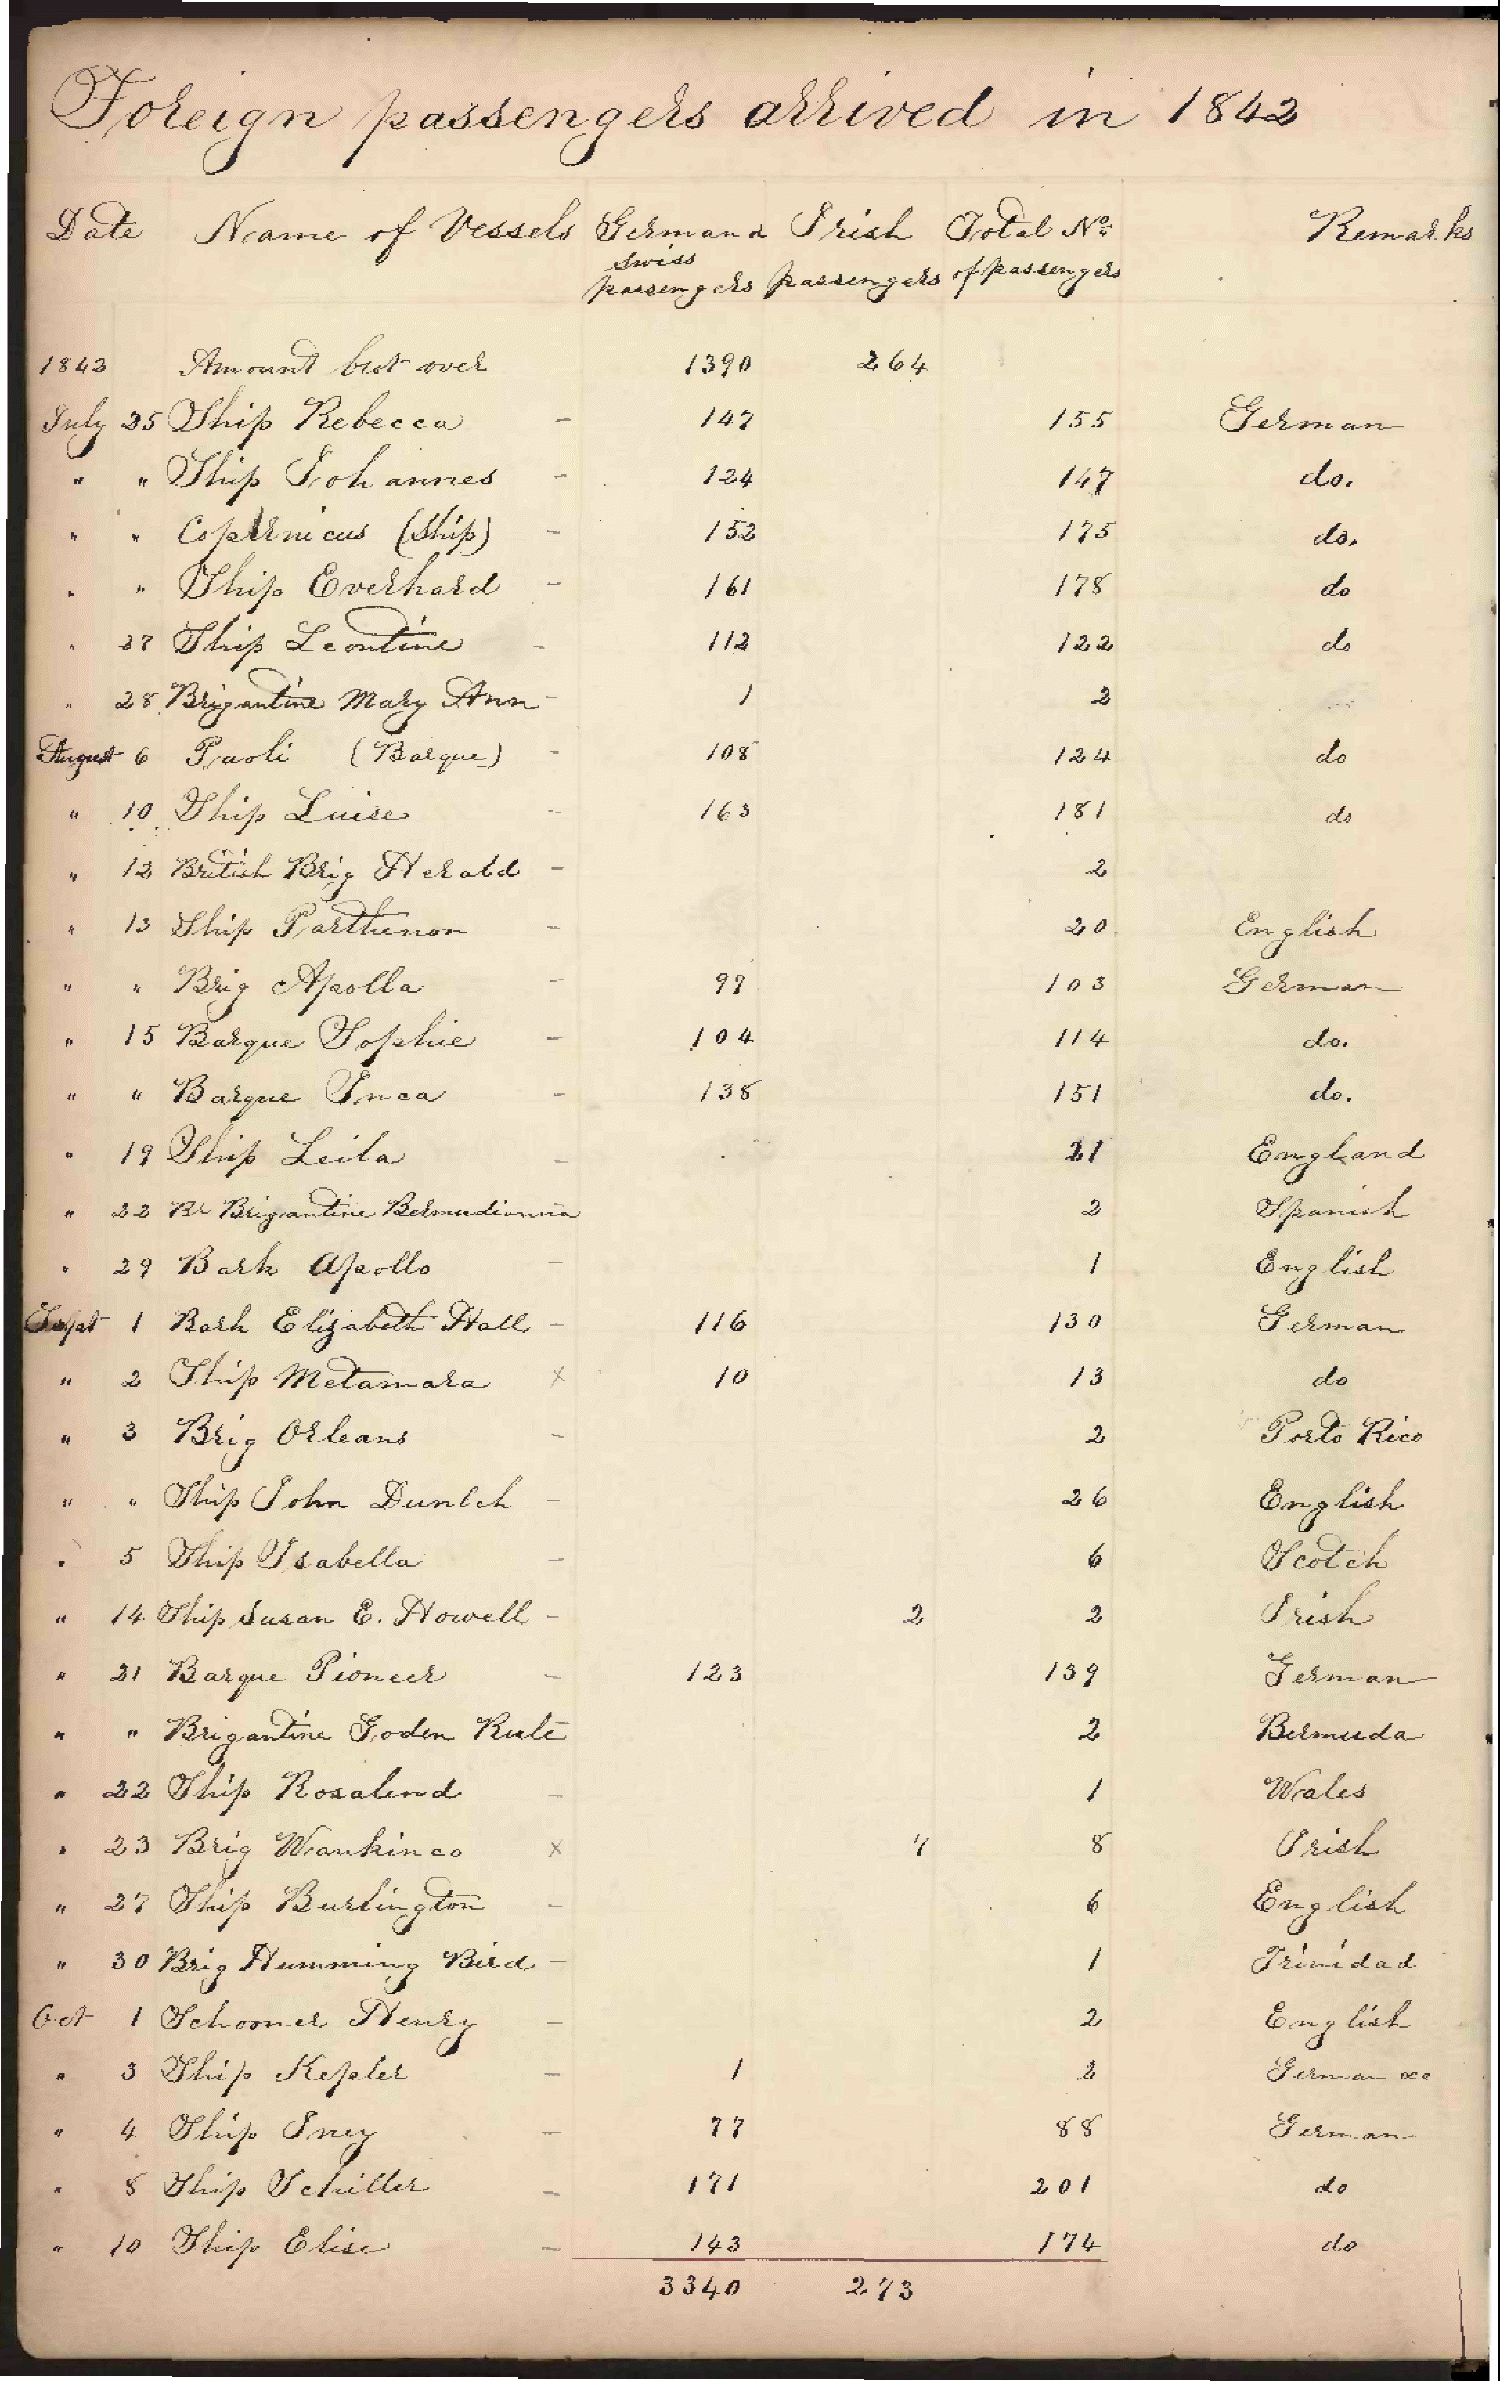 Foreign passengers arrived in 1842
Date Name of Vessels German & Irish Total No. Remarks
Swiss
passengers passengers of passengers
1842 Amount brot over 1390 264
July 25 Ship Rebecca - 147 155 German
" " Ship Johannes - 124 147 do.
" " Copernicus (Ship) - 152 175 do.
" " Ship Everhard - 161 178 do
" 27 Ship Leontine - 112 122 do
" 28 Brigantine Mary Ann - 1 2
August 6 Paoli (Barque) - 108 124 do
" 10 Ship Luise - 163 181 do
" 12 British Brig Herald - 2
" 13 Ship Parthenon - 20 English
" " Brig Apollo - 97 103 German
" 15 Barque Sophie - 104 114 do.
" " Barque Inca - 138 151 do.
" 19 Ship Leila - 21 England
" 22 Br Brigantine Bermudiana 2 Spanish
" 29 Bark Apollo - 1 English
Sept 1 Bark Elizabeth Hall - 116 130 German
" 2 Ship Metamara x 10 13 do
" 3 Brig Orleans - 2 Porto Rico
" " Ship John Dunlch - 26 English
" 5 Ship Isabella - 6 Scotch
" 14 Ship Susan E. Howell - 2 2 Irish
" 21 Barque Pioneer - 123 139 German
" " Brigantine Goden Rule - 2 Bermuda
" 22 Ship Rosalend - 1 Wales
" 23 Brig Wankinco x 7 8 Irish
" 27 Ship Burlington - 6 English
" 30 Brig Humming Bird - 1 Trinidad
Oct 1 Schooner Henry - 2 English
" 3 Ship Kepler - 1 2 German
" 4 Ship Iney - 77 88 German
" 8 Ship Schiller - 171 201 do
" 10 Ship Elise - 143 174 do
3340 273